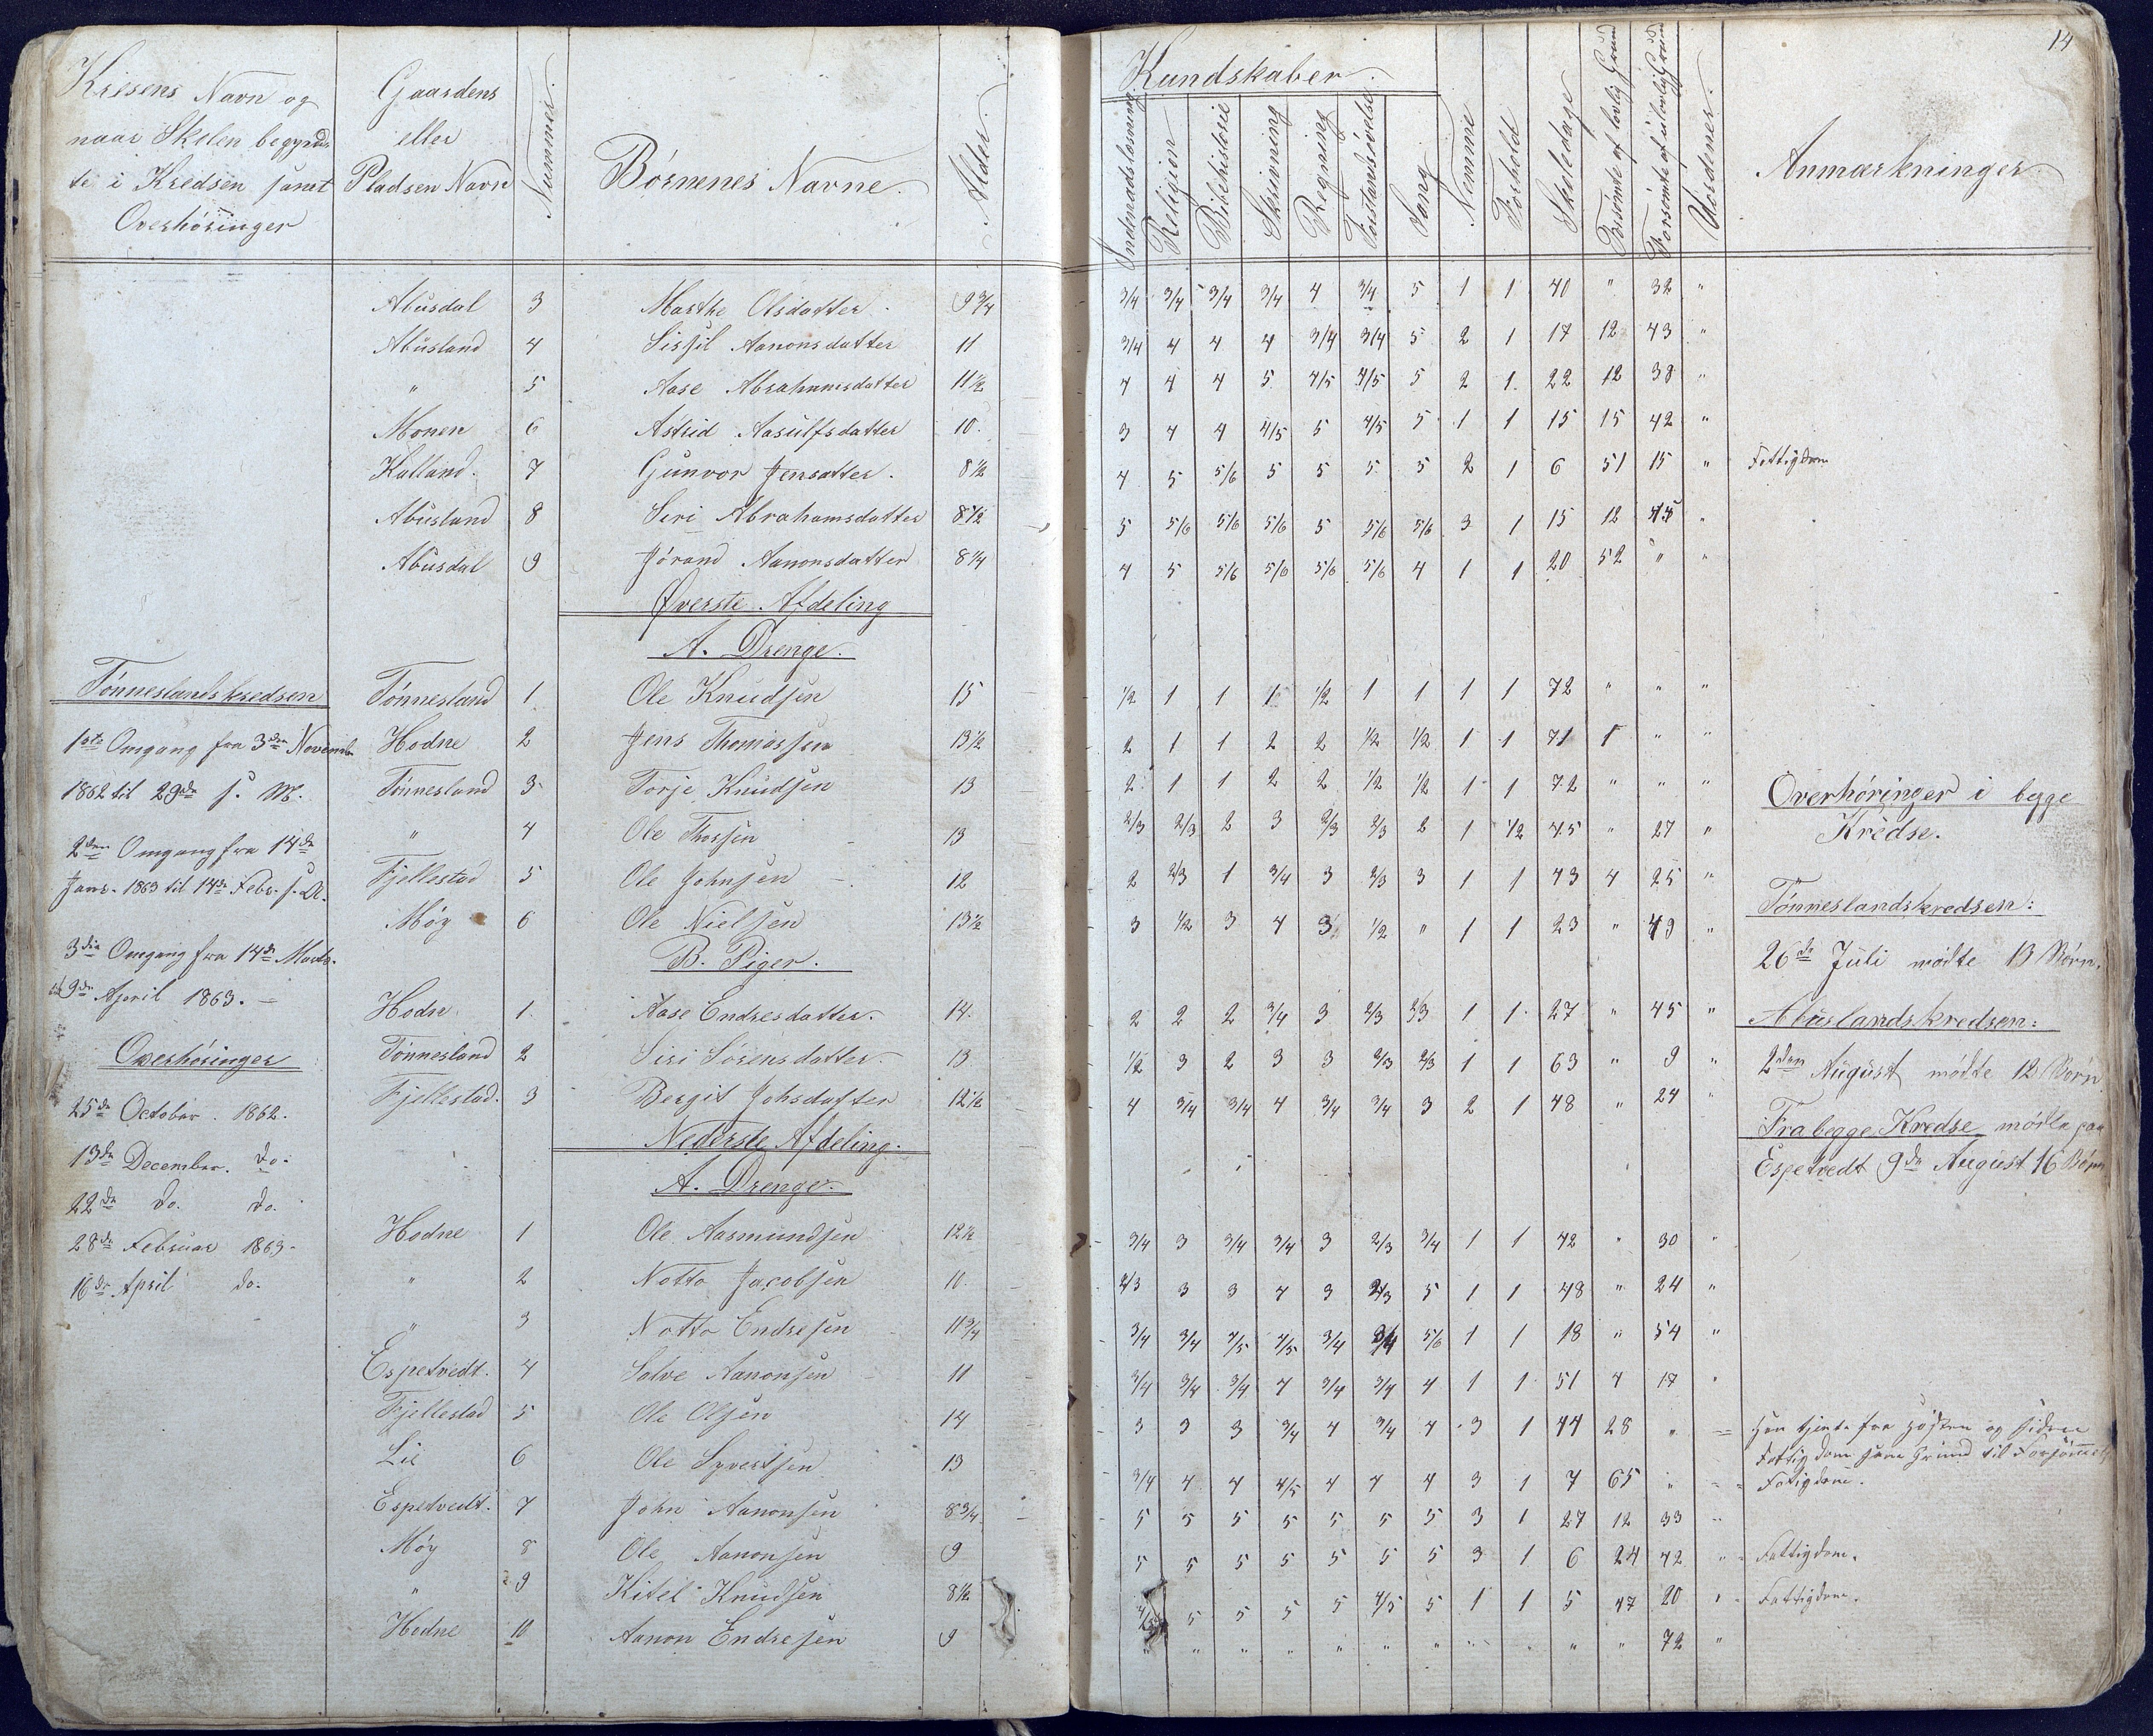 14
Kresens Navn og
naar Skolen begynd-
te i Kredsen samt
Overhøringer
Gaardens
eller
Pladsen Navn
Nummer.
Børnenes Navne.
Alder.
Kundskaber.
Indenadslæsning
Religion
Bibelhistorie
Skrivning
Regning
Forstandsøvelse
Sang
Nemme
Forhold
Skoledage
Forsømte af lovlig Grund
Forsømte af ulovlig Grund
Udsdener.
Anmærkninger.
Abusdal 3 Marthe Olsdatter 9 3/4 3/4 3/4 3/4 3/4 4 3/4 5 1 1 40 " 32 "
Abusland 4 Sissil Aanonsdatter 11 3/4 4 4 4 3/4 3/4 5 2 1 17 12 43 "
" 5 Aase Abrahamsdatter 11 1/2 4 4 4 5 4/5 4/5 5 2 1 22 12 38 "
Monen 6 Astrid Aasulfsdatter 10 3 4 4 4/5 5 4/5 5 1 1 15 15 42 "
Kalland. 7 Gunvor Jensatter. 8 1/2 4 5 5/6 5 5 5 5 2 1 6 51 15 " Fattigdom
Abusland 8 Siri Abrahamsdatter 8 1/2 5 5/6 5/6 5/6 5 5/6 5/6 3 1 15 12 45 "
Abusdal 9 Jórand Aanonsdatter 8 1/4 4 5 5/6 5/6 5/6 5/6 4 1 1 20 52 " "
Øverste Afdeling
A. Drenge.
Tønneslandskredsen Tønnesland 1 Ole Knudsen 15 1/2 1 1 1 1/2 1 1 1 1 72 " " "
1ste Omgang fra 3die Novemb. Hodne 2 Jens Thomassen 13 1/2 2 1 1 2 2 1/2 1/2 1 1 71 1 " "
1862 til 29de s. M. Tønnesland 3 Torje Knudsen 13 2 1 1 2 2 1/2 1/2 1 1 72 " " "
Overhøringer i begge
" 4 Ole Thorsen 13 2/3 2/3 2 3 2/3 2/3 2 1 1/2 45 " 27 "
Kredse.
2den Omgang fra 14de
Fjellestad 5 Ole Johnsen 12 2 2/3 1 3/4 3 2/3 3 1 1 43 4 25 "
Janr. 1863 til 14de Febr. s. A.
Tønneslandskredsen:
Møy 6 Ole Nielsen 13 1/2 3 1/2 3 4 3 1/2 " 1 1 23 " 49 "
3die Omgang fra 14de Marts.
B. Piger.
26de Juli mødte 13 Børn.
til 9de April 1863.
Hodne 1. Aase Endresdatter. 14. 2 2 2 3/4 3 2/3 2/3 1 1 27 " 45 "
Abuslandskredsen:
Overhøringer
Tønnesland 2 Siri Sørensdatter 13 1/2 3 2 3 3 2/3 2/3 1 1 63 " 9 "
2den August mødte 12 Børn.
Fjellestad. 3 Bergit Johsdatter 12 1/2 4 3/4 3/4 4 3/4 3/4 3 2 1 48 " 24 "
25de October. 1862.
Fra begge Kredse mødte paa
Nederste Afdeling.
13de December. do.
Espetvedt 9de August 16 Børn
A. Drenge.
22de do. do.
28de Februar 1863. Hodne 1 Ole Aasmundsen 12 1/2 3/4 3 3/4 3/4 3 2/3 3/4 1 1 42 " 30 "
16de April do. " 2 Notto Jacobsen 10. 2/3 3 3 4 3 2/3 5 1 1 48 " 24 "
" 3 Notto Endresen 11 3/4 3/4 3/4 4/5 4/5 3/4 3/4 5/6 1 1 18 " 54 "
Espetvedt. 4 Salve Aanonsen 11 3/4 3/4 3/4 4 3/4 3/4 4 1 1 51 4 17 "
Fjellestad 5 Ole Olsen 14 3 3 3 3/4 4 3/4 4 3 1 44 28 " = Han tjente fra Høsten og siden
Fattigdom som Grund til Forsømmels
Lie 6 Ole Syvertsen 13 3/4 4 4 4/5 4 4 4 3 1 7 65 " = Fatigdom.
Espetvedt. 7 John Aanonsen 8 3/4 5 5 5 5 5 5 5 3 1 27 12 33 "
Møy 8 Ole Aanonsen 9 5 5 5 5 5 5 5 3 1 6 24 42 " Fattigdom.
" 9 Kitel Knudsen 8 1/2 4/5 5 5 5 5 4/5 5 1 1 5 47 20 " Fattigdom.
Hodne 10 Aanon Endresen 9 " " " " " " " " " " " 72 "